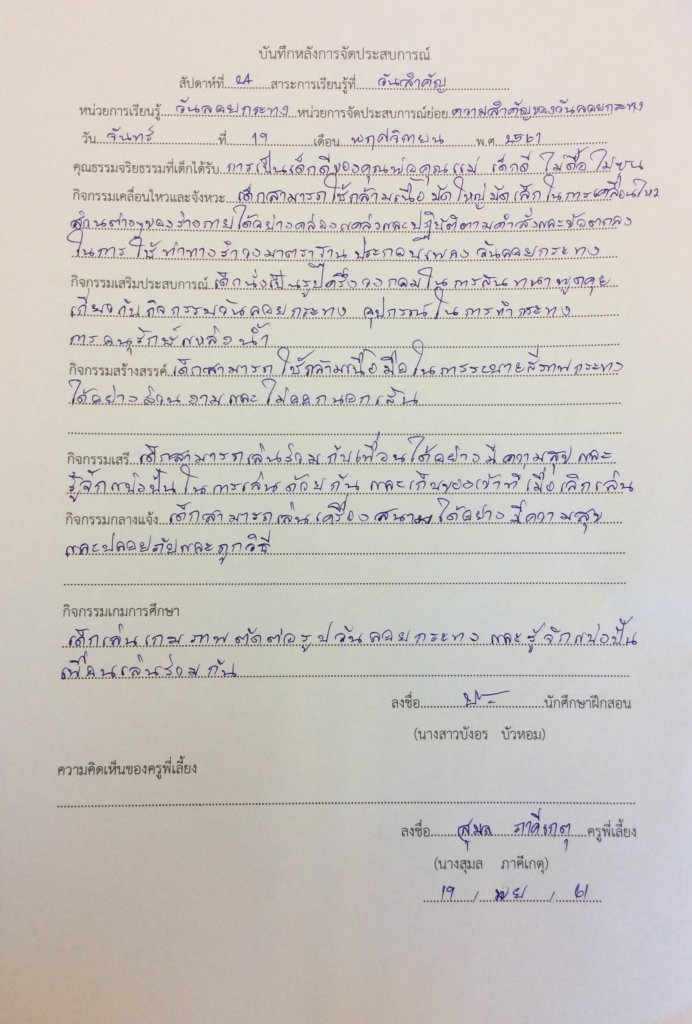 บันทึกหลังการจัดประสบการณ์
สัปดาห์ที่ 24 สาระการเรียนรู้ที่ วันสำคัญ
หน่วยการเรียนรู้ วันลอยกระทง หน่วยการจัดประสบการณ์ย่อย ความสำคัญของวันลอยกระทง
วัน จันทร์ ที่ 19 เดือน พฤศจิกายน พ.ศ 2561
คุณธรรมจริยธรรมที่เด็กได้รับ การเป็นเด็กดีของคุณพ่อคุณแม่ เด็กดี ไม่ดื้อ ไม่ซน
กิจกรรมเคลื่อนไหวและจังหวะ เด็กสามารถใช้กล้ามเนื้อมัดใหญ่มัดเล็กในการเคลื่อนไหว
ส่วนต่างๆของร่างกายได้อย่างคล่องแคล่วและปฏิบัติตามคำสั่งและข้อตกลง
ในการใช้ท่าทางรำวงมาตราฐาน ประกอบเพลง วันลอยกระทง
กิจกรรมเสริมประสบการณ์ เด็กนั่งเป็นรูปครึ่งวงกลมในการสนทนาพูดคุย
เกี่ยวกับกิจกรรมวันลอยกระทง อุปกรณ์ในการทำกระทง
การอนุรักษ์แหล่งน้ำ
กิจกรรมสร้างสรรค์ เด็กสามารถใช้กล้ามเนื้อมือในการระบายสีภาพกระทง
ได้อย่างสวยงามและไม่ออกนอกเส้น
กิจกรรมเสรี เด็กสามารถเล่นร่วมกับเพื่อนได้อย่างมีความสุขและ
รู้จักแบ่งปันในการเล่นด้วยกัน และเก็บของเข้าที่เมื่อเลิกเล่น
กิจกรรมกลางแจ้ง เด็กสามารถเล่นเครื่องสนามได้อย่างมีความสุข
และปลอยภัยและถูกวิธี
กิจกรรมเกมการศึกษา
เด็กเล่นเกมภาพตัดต่อรูปวันลอยกระทง และรู้จักแบ่งปัน
เพื่อนเล่นร่วมกัน
ลงชื่อ นักศึกษาฝึกสอน
(นางสาวบังอร บัวหอม)
ความคิดเห็นของครูพี่เลี้ยง
ลงชื่อ สุมล ภาคีเกตุ ครูพี่เลี้ยง
(นางสุมล ภาคีเกตุ)
19 / พย / 61